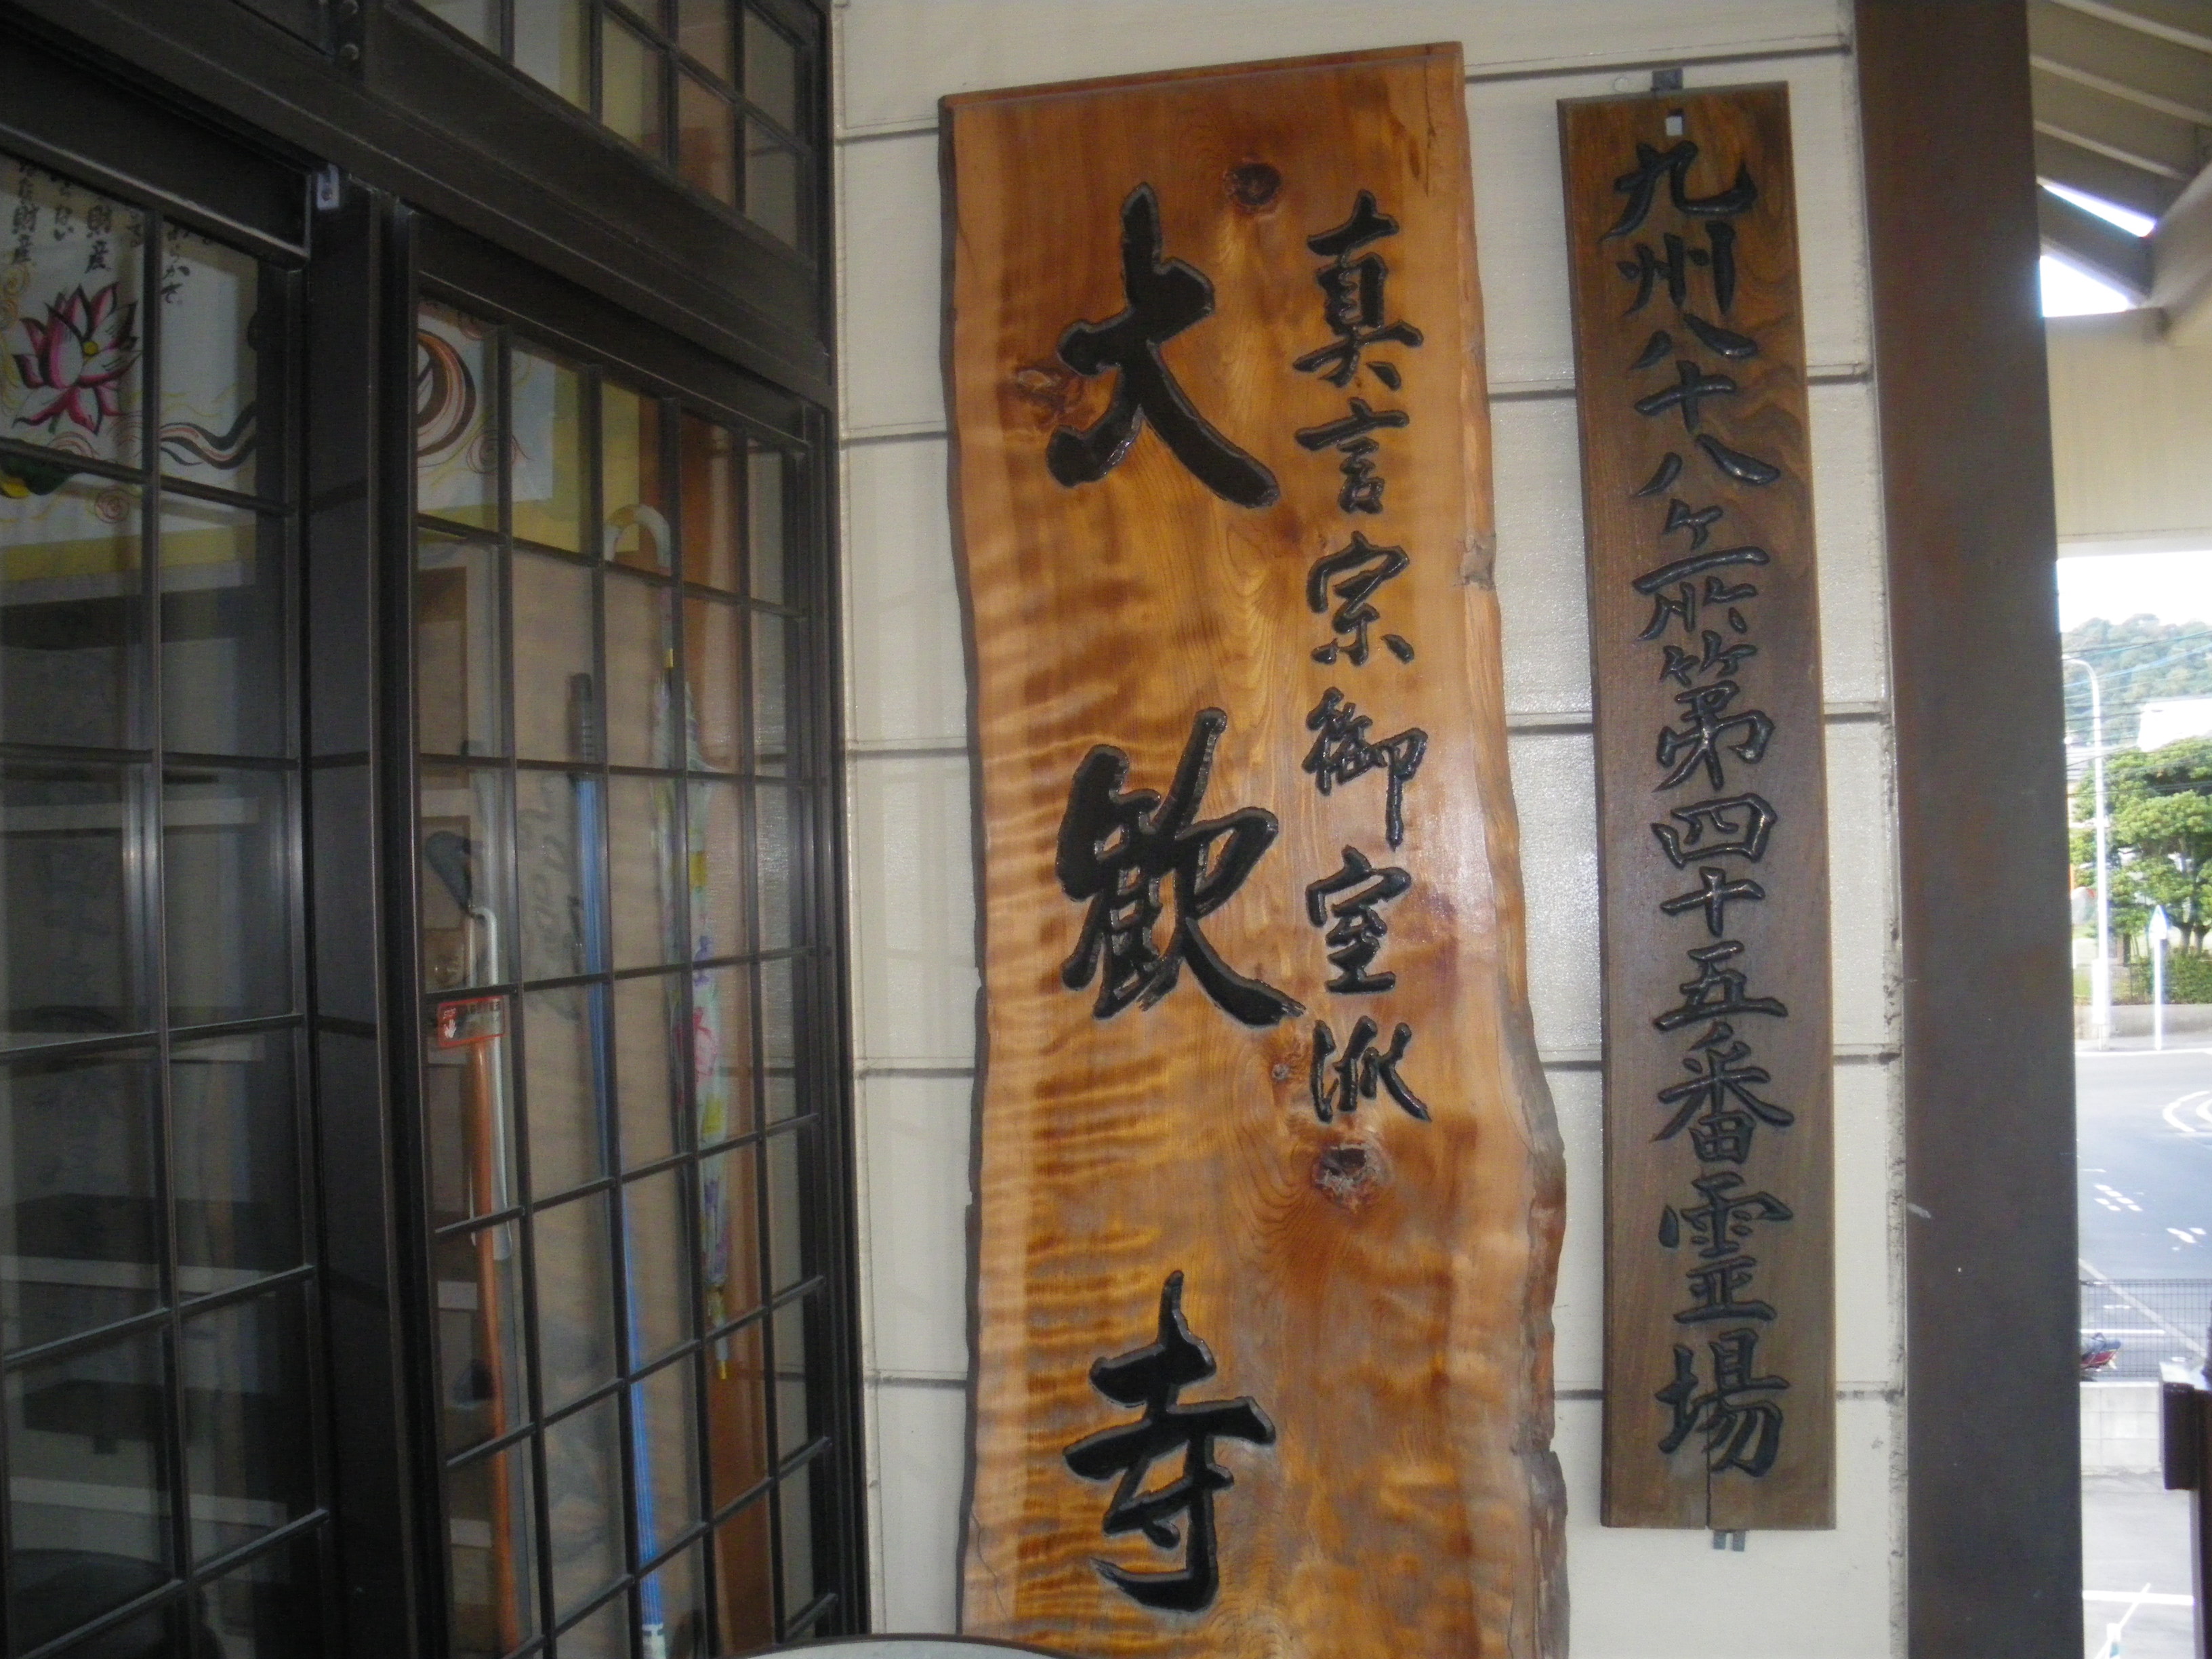 九州八十八ヶ所第四十五番霊場
真言宗御室派
大歓寺
財産
財産
STOP